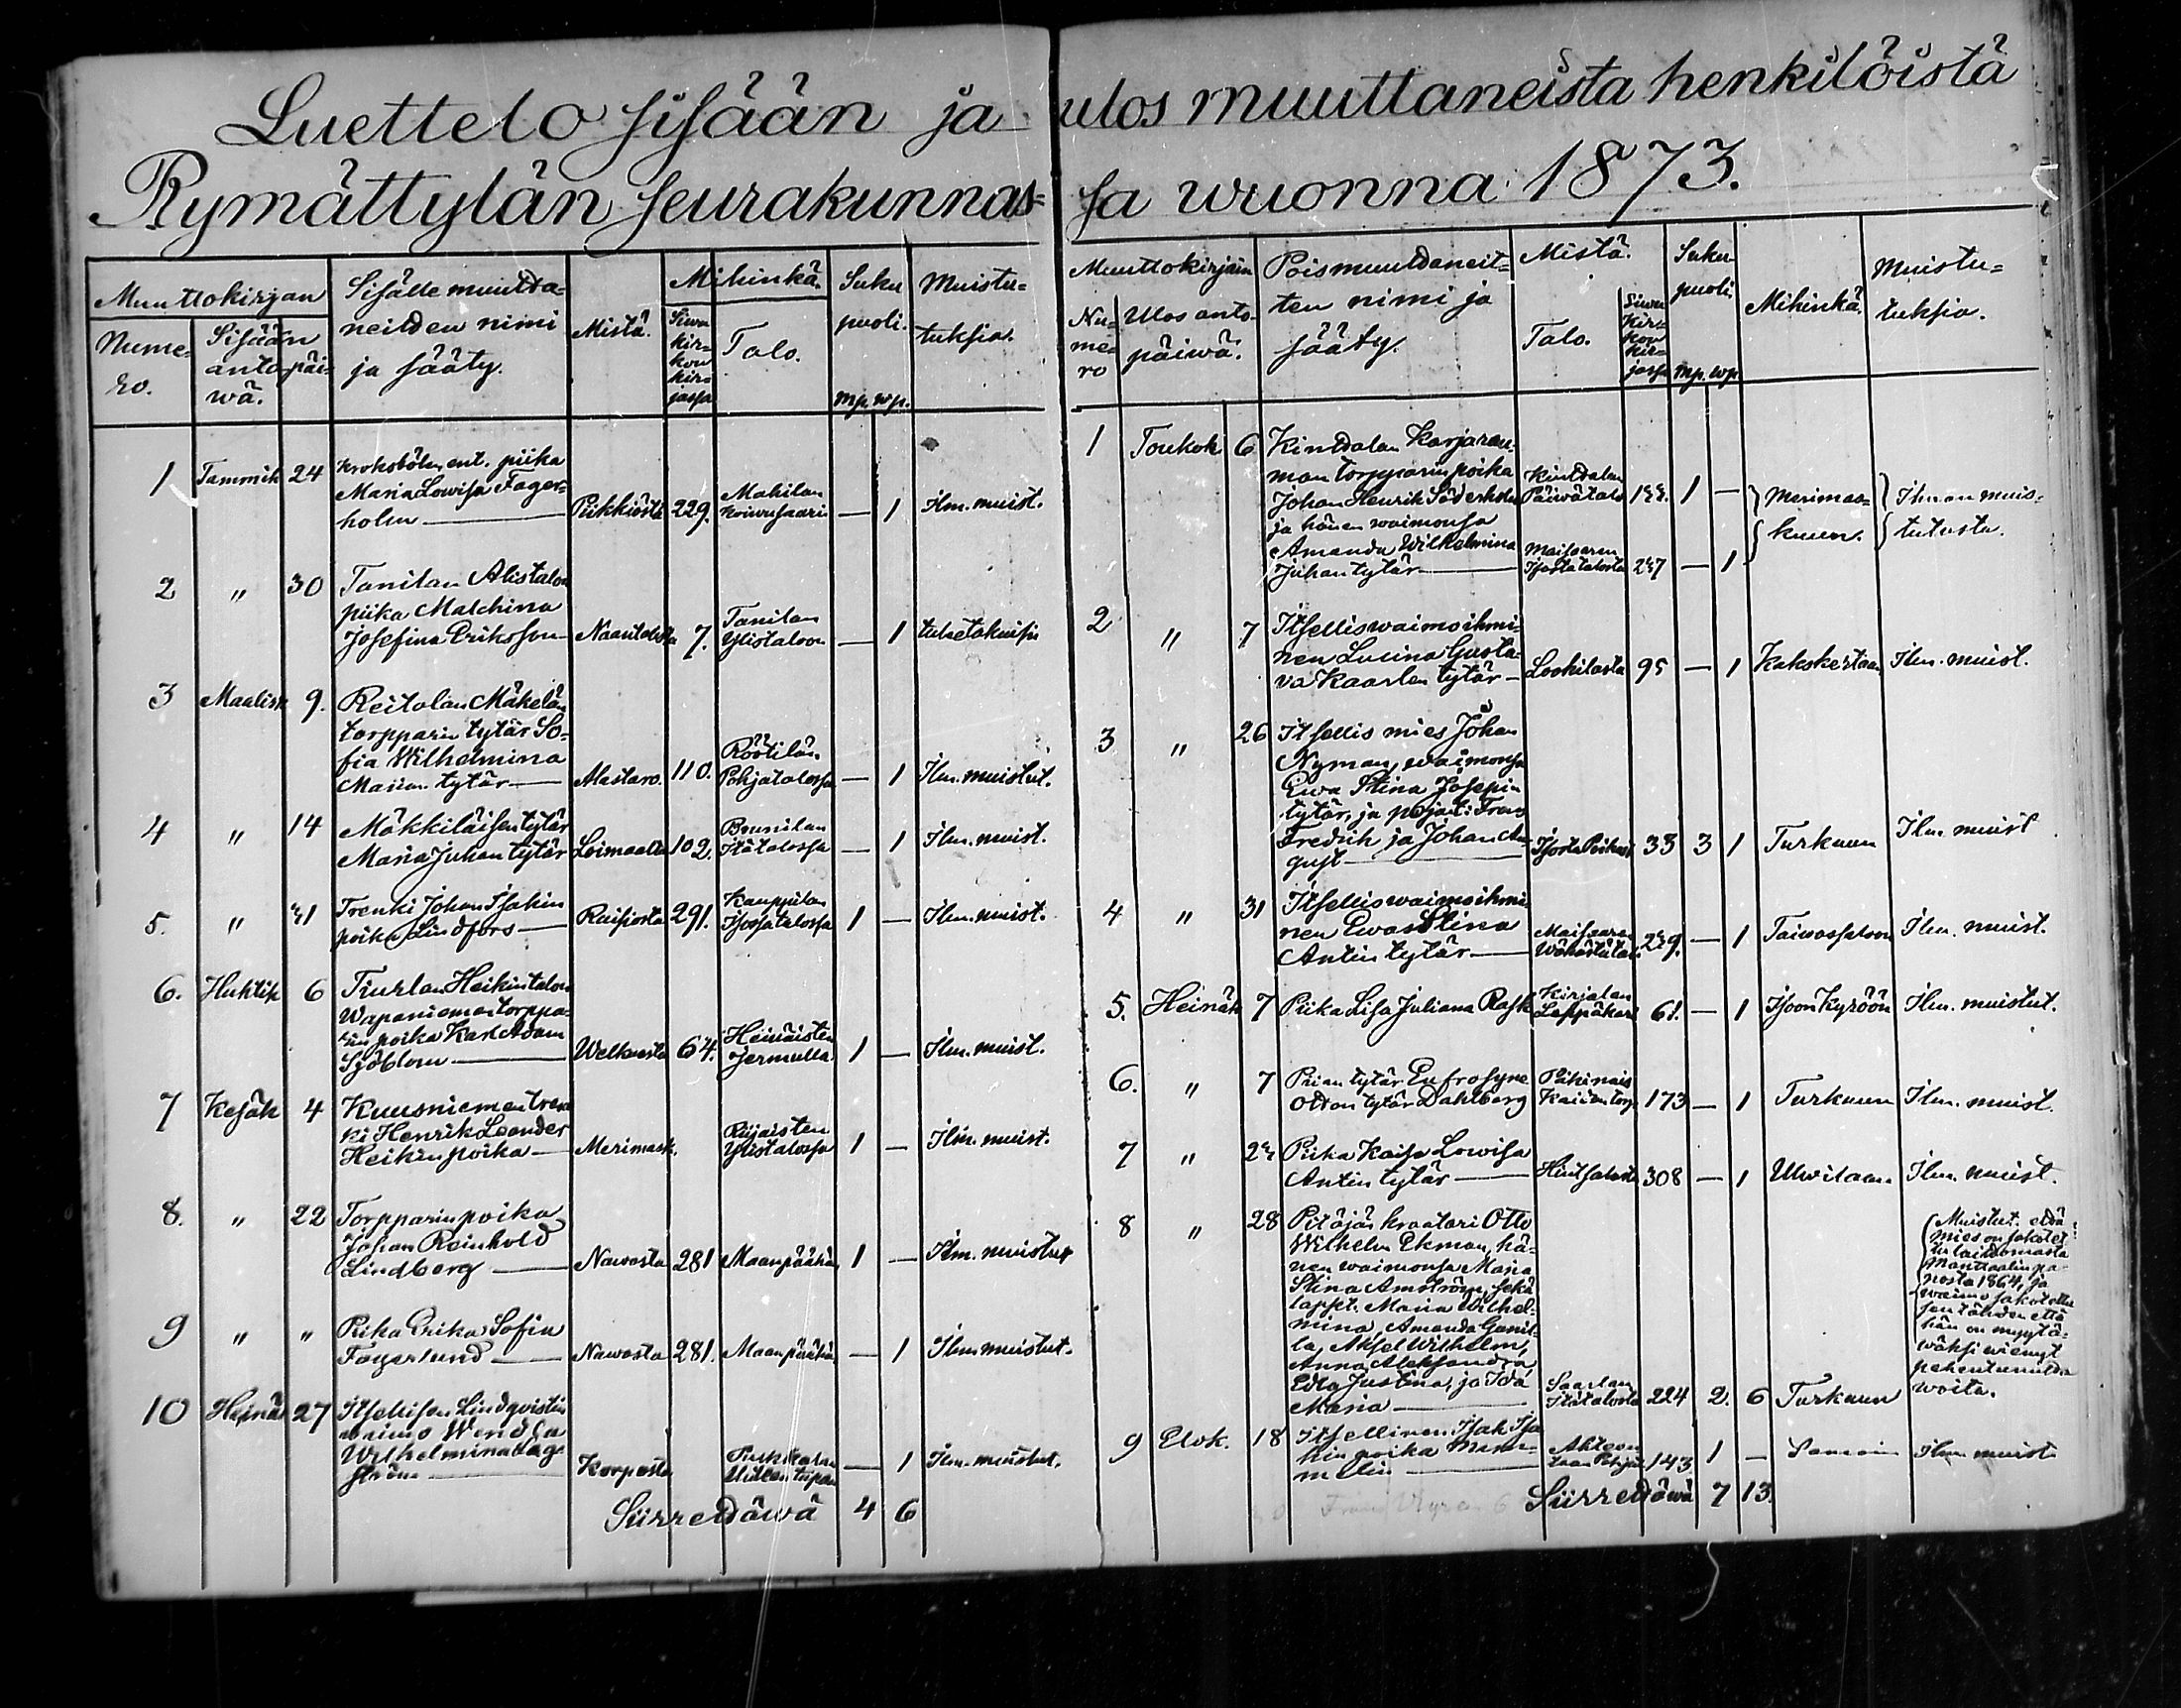 Luettelo sisään ja ulos muuttaneista henkilöistä
Rymättylän seurakunnas=sa wuonna 1873.
Muuttokirjan
Nume=
ro.
Sisään
anto päi=
wä.
Sisälle muutta=
neitden nimi
ja sääty.
Mistä.
Mihinkä.
Siwu
kir=
kon
kir=
jassa
Talo.
Suku
puoli.
mp. wp.
Muistu=
tuksia.
1 Tammik 24
Maria Lowisa Fager=
holm Piikkiöstä 229. — 1 Ilm. muist.
2 " 30 Tanilan Alistalon
piika Malchina
Josefina Eriksson Naantalista 7. Tanilan
Ylistaloon — 1
3 Maalisk 9. Reitolan Mäkelän
torpparin tytär So=
fia Wilhelmina
tytär Alastaro. 110. Röötilän
Pohjatalossa — 1 Ilm. muistut.
4 " 14 Mäkkiläisen tytär
Maria Juhan tytär Loimaalta 102.
Itätalossa — 1 Ilm. muist.
5. " Trenki Johan Isakin
poika Lindfors Raisiosta 291. Kauppilan
Isossatalossa 1 — Ilm. muist.
6. Huhtik 6 Heikintalon
Wapaniemen torppa=
rin poika Karl Adam
Sjöblom Welkuasta 64. Heinäisten
Jermulla 1 — Ilm. muist.
7 Kesäk 4 Kuusniemen tren
ki Henrik Leander
Heikin poika Merimask. Riijaisten
Ylistalossa 1 — Ilm. muist.
8. " 22 Torpparin poika
Johan Reinhold
Lindberg Nawosta 281 Maanpäähän 1 — Ilm. muistut
9 " " Piika Erika Sofia
Fagerlund Nawosta 281. Maanpäähän — 1 Ilm. muistut.
10 Heinäk 27 Itsellisen Lindqvistin
waimo Wendla
Wilhelmina Lag=
ström Korposta — 1 Ilm. muistut.
Siirrettäwä 4 6
Muuttokirjain
Nu=
me=
ro
Ulos anto-
päiwä.
Poismuuttaneit=
ten nimi ja
sääty.
Mistä.
Talo.
Siwu
Kir=
kon
kir=
jassa
Suku
puoli.
mp. wp.
Mihinkä.
Muistu=
tuksia.
1 Toukok 6 Kinttalan Karjarau=
man torpparin poika
Johan Henrik Söderholm
ja hänen waimonsa
Amanda Wilhelmina
Juhan tytär
Kinttalan
Päiwätalo 1 —
Maisaaren
Isostatalosta 247 — 1
Merimas=
kuun.
Ilman muis=
tutusta.
2 " 7 Itsellis waimo ihmi=
nen Lucina Gusta=
va Kaarlen tytär Lookilasta 95 — 1 Kakskertaan Ilm. muist.
3 " 26 Itsellis mies Johan
Nyman, waimonsa
Ewa Stina Josepin
tytär, ja pojat: Frans
Fredrik ja Johan Au
gust 33 3 1 Turkuun Ilm. muist
4 " 31 Itsellis waimo ihmi
nen Ewa Stina
Antin tytär Maisaaren — 1 Taiwassaloon Ilm. muist.
5. Heinäk 7 Piika Lisa Juliana Rask Kirjalan 61. — 1 Isoon Kyröön Ilm. muistut.
6. " 7 Piian tytär Eufrosyne
Otton tytär Dahlberg 173 — 1 Turkuun Ilm. muist.
7 " Piika Kaisa Lowisa
Antin tytär 308 — 1 Ulwilaan Ilm. muist.
8 " 28 Pitäjän kraatari Otto
Wilhelm Ekman, hä=
nen waimonsa Maria
Stina Amström, sekä
lapset. Maria Wilhel=
mina, Amanda Gunil=
la, Aksel Wilhelm,
Anna Aleksandra
Edla Justina, ja Ida
Maria Saarlan
Itätalosta 224 2. 6 Turkuun
Muistut. että
mies on sakotet
tu
1864, ja
waimo sakotettu
sen tähden että
hän on myytä=
wäksi wienyt
woita.
9 Elok. 18 Itsellinen Isak Isa
kin poika
143 1 — Ilm. muist
Siirrettäwä 7 13.